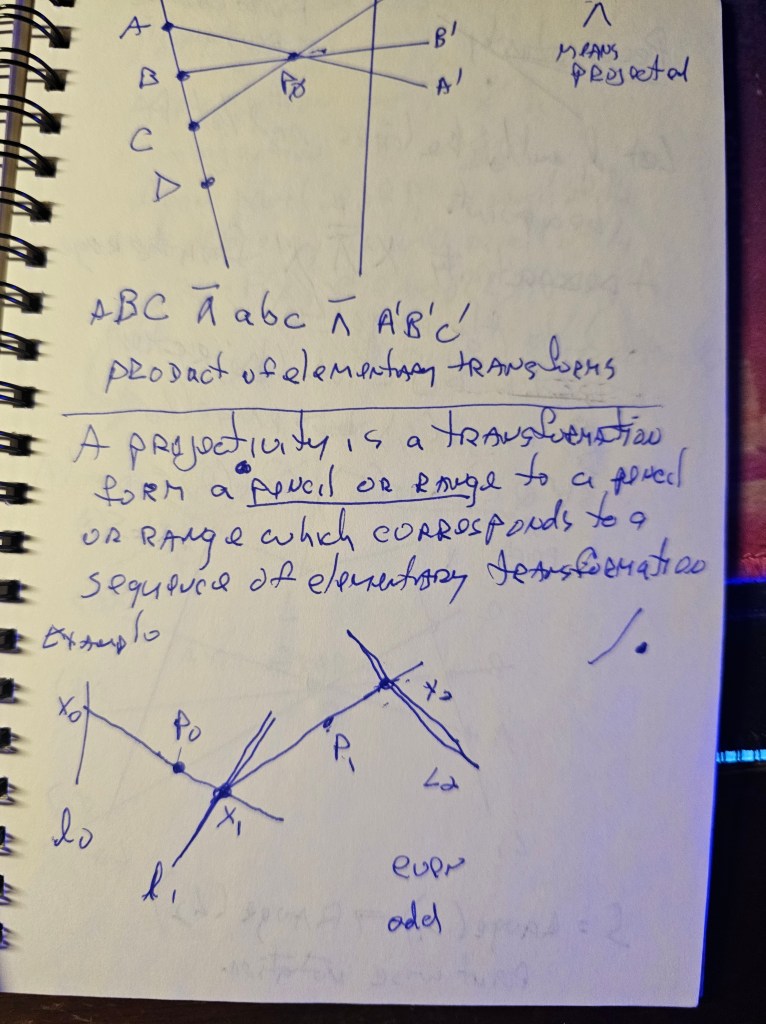 A
B
C
D
P₀
B'
A'
⊼
MEANS
projectd
ABC ⊼ abc ⊼ A'B'C'
product of elementary TRANSforms
A projectivity is a TRANSformation
form a pencil OR Range to a pencil
OR RANge which corresponds to a
sequence of elementary transformation
Example
X₀
P₀
X₁
P₁
X₂
l₀
l₁
L₂
even
odd